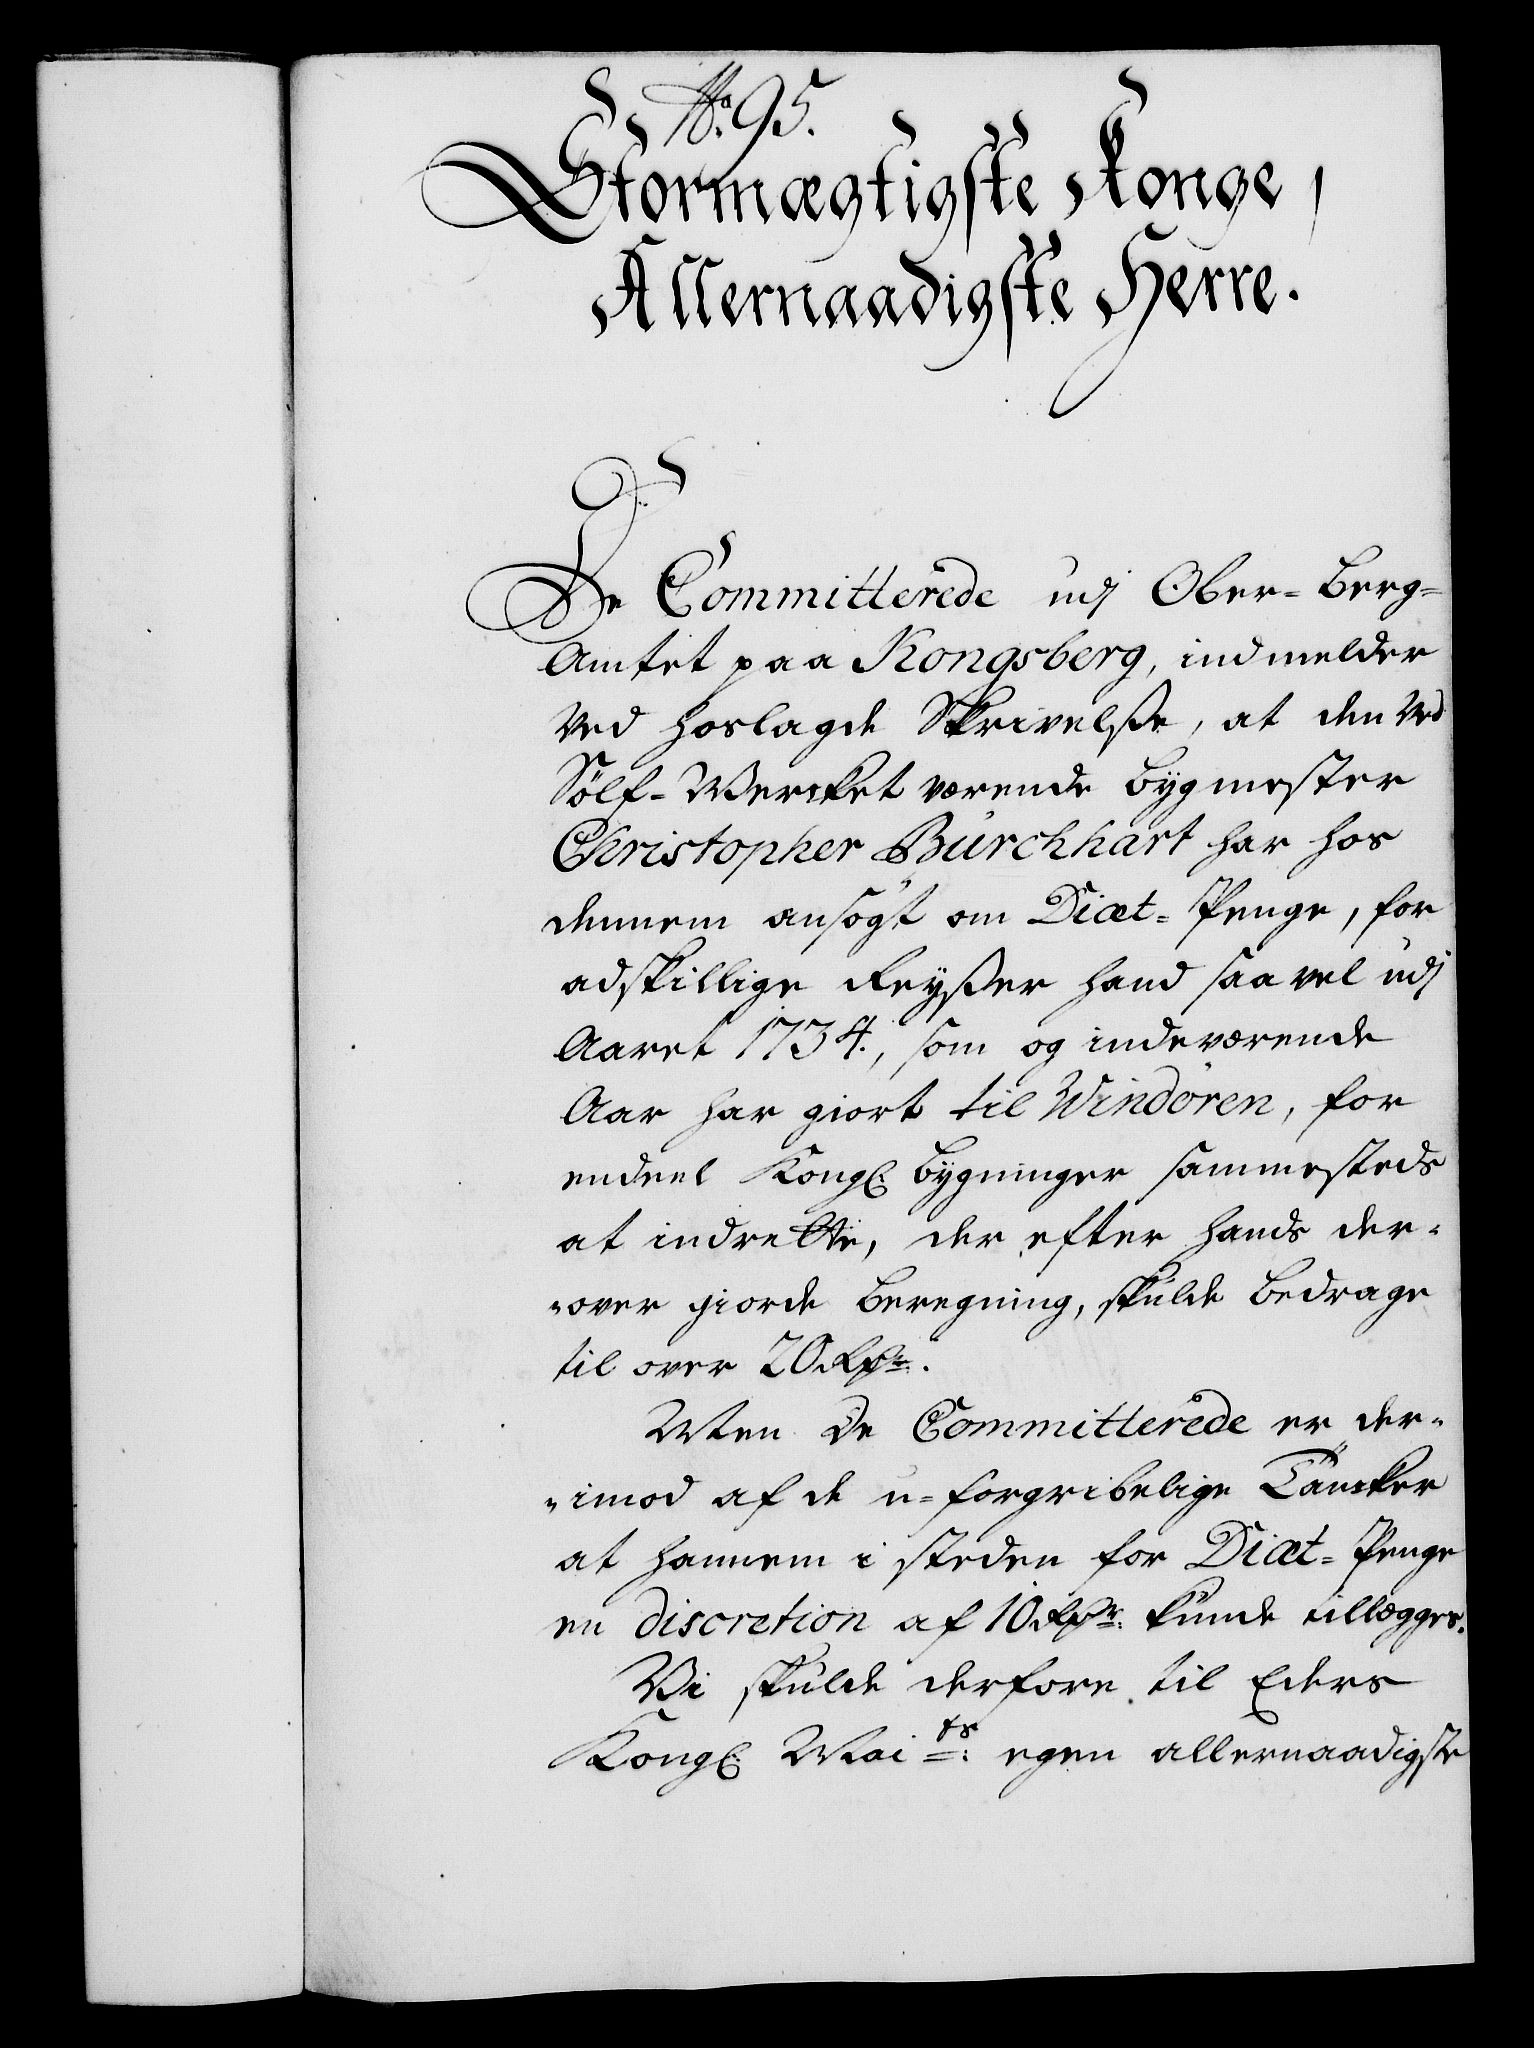 No. 95.
Stormægtigste Konge,
Allernaadigste Herre.
De Committerede udj Ober-Berg-
Amtet paa Kongsberg, indmelder
ved hoslagde Skrivelße, at den ved
Sølf-Wercket værende bygmester
Christopher Burchhart har hos
dennem ansøgt om Diæt-Penge, for
adskillige Reyßer hand saa vel udj
Aaret 1734., som og indeværende
Aar har giort til Windoren, for
endeel Kongl: bygninger sammesteds
at indrette, der efter hands der-
-over giorde beregning, skulde bedrage
til over 20 Rdr.
Men De Committerede er der-
-imod af de u-forgribelige Tancker
at hannem i steden for Diæt-Penge
en discretion af 10 Rdr: kunde tillegges.
Vi skulde derfore til Eders
Kongl: Maits: egen allernaadigste